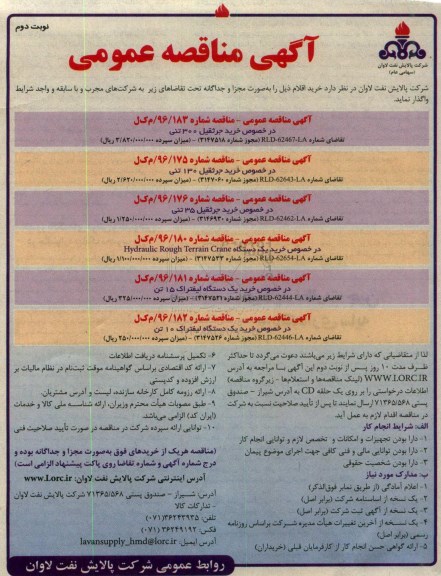 نوبت دوم
آگهی مناقصه عمومی
شرکت پالایش نفت لاوان
(سهامی عام)
شرکت پالایش نفت لاوان در نظر دارد خرید اقلام ذیل را به‌صورت مجزا و جداگانه تحت تقاضاهای زیر به شرکت‌های مجرب و با سابقه و واجد شرایط
واگذار نماید.
آگهی مناقصه عمومی - مناقصه شماره ۹۶/۱۸۳/م‌ک‌ل
در خصوص خرید جرثقیل ۳۰۰ تنی
تقاضای شماره RLD-62467-LA (مجوز شماره ۳۱۴۷۵۱۸) - (میزان سپرده ۳/۸۲۰/۰۰۰/۰۰۰ ریال)
آگهی مناقصه عمومی - مناقصه شماره ۹۶/۱۷۵/م‌ک‌ل
در خصوص خرید جرثقیل ۱۳۰ تنی
تقاضای شماره RLD-62643-LA (مجوز شماره ۳۱۴۷۰۶۰) - (میزان سپرده ۲/۶۲۰/۰۰۰/۰۰۰ ریال)
آگهی مناقصه عمومی - مناقصه شماره ۹۶/۱۷۶/م‌ک‌ل
در خصوص خرید جرثقیل ۳۵ تنی
تقاضای شماره RLD-62462-LA (مجوز شماره ۳۱۴۶۹۳۰) - (میزان سپرده ۱/۲۵۰/۰۰۰/۰۰۰ ریال)
آگهی مناقصه عمومی - مناقصه شماره ۹۶/۱۸۰/م‌ک‌ل
در خصوص خرید یک دستگاه Hydraulic Rough Terrain Crane
تقاضای شماره RLD-62654-LA (مجوز شماره ۳۱۴۷۵۳۳) - (میزان سپرده ۱/۱۰۰/۰۰۰/۰۰۰ ریال)
آگهی مناقصه عمومی - مناقصه شماره ۹۶/۱۸۱/م‌ک‌ل
در خصوص خرید یک دستگاه لیفتراک ۱۵ تن
تقاضای شماره RLD-62444-LA (مجوز شماره ۳۱۴۷۵۲۱) - (میزان سپرده ۳۲۵/۰۰۰/۰۰۰ ریال)
آگهی مناقصه عمومی - مناقصه شماره ۹۶/۱۸۲/م‌ک‌ل
در خصوص خرید یک دستگاه لیفتراک ۱۰ تن
تقاضای شماره RLD-62446-LA (مجوز شماره ۳۱۴۷۵۲۶) - (میزان سپرده ۲۵۰/۰۰۰/۰۰۰ ریال)
لذا از متقاضیانی که دارای شرایط زیر می‌باشند دعوت می‌گردد تا حداکثر
ظرف مدت ۱۰ روز پس از نوبت دوم این آگهی بنا مراجعه به آدرس
WWW.LORC.IR (لینک مناقصه‌ها و استعلام‌ها - زیرگروه مناقصه)
اطلاعات درخواستی را بر روی یک حلقه CD به آدرس شیراز - صندوق
پستی ۷۱۳۶۵/۵۶۸ ارسال نمایند تا پس از تأیید صلاحیت نسبت به شرکت
در مناقصه اقدام لازم به عمل آید.
الف: شرایط انجام کار
۱- دارا بودن تجهیزات و امکانات و تخصص لازم و توانایی انجام کار
۲- دارا بودن توانایی مالی و فنی کافی جهت اجرای موضوع پیمان
۳- دارا بودن شخصیت حقوقی
ب: مدارک مورد نیاز
۱- اعلام آمادگی (از طریق نمابر فوق‌الذکر)
۲- یک نسخه از اساسنامه شرکت (برابر اصل)
۳- یک نسخه از آگهی ثبت شرکت (برابر اصل)
۴- یک نسخه از آخرین تغییرات هیأت مدیره شرکت براساس روزنامه
رسمی (برابر اصل)
۵- ارائه گواهی حسن انجام کار از کارفرمایان قبلی (خریداران)
۶- تکمیل پرسشنامه دریافت اطلاعات
۷- ارائه کد اقتصادی بر اساس گواهینامه موقت ثبت‌نام در نظام مالیات بر
ارزش افزوده و کدپستی
۸- ارائه رزومه کامل کارخانه سازنده، لیست و آدرس مشتریان.
۹- طبق مصوبات هیأت محترم وزیران، ارائه شناسه ملی کالا و خدمات
(ایران کد) الزامی می‌باشد.
۱۰- توانایی ارائه سپرده شرکت در مناقصه در صورت تأیید صلاحیت فنی
(مناقصه هریک از خریدهای فوق به‌صورت مجزا و جداگانه بوده و
درج شماره آگهی و شماره تقاضا روی پاکت پیشنهاد الزامی است)
آدرس اینترنتی شرکت پالایش نفت لاوان: www.Lorc.ir
آدرس: شیراز - صندوق پستی ۷۱۳۶۵/۵۶۸ شرکت پالایش نفت لاوان
- تدارکات کالا
تلفن: ۳۶۲۴۲۹۳۵(۰۷۱)
فکس: ۳۶۲۴۹۱۹۲ (۰۷۱)
آدرس ایمیل: lavansupply_hmd@lorc.ir
روابط عمومی شرکت پالایش نفت لاوان